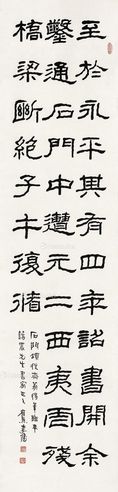 至於永平其有四年詔書開余
鑿通石門中遭元二西夷虐殘
橋梁斷絕子午復循
石門頌